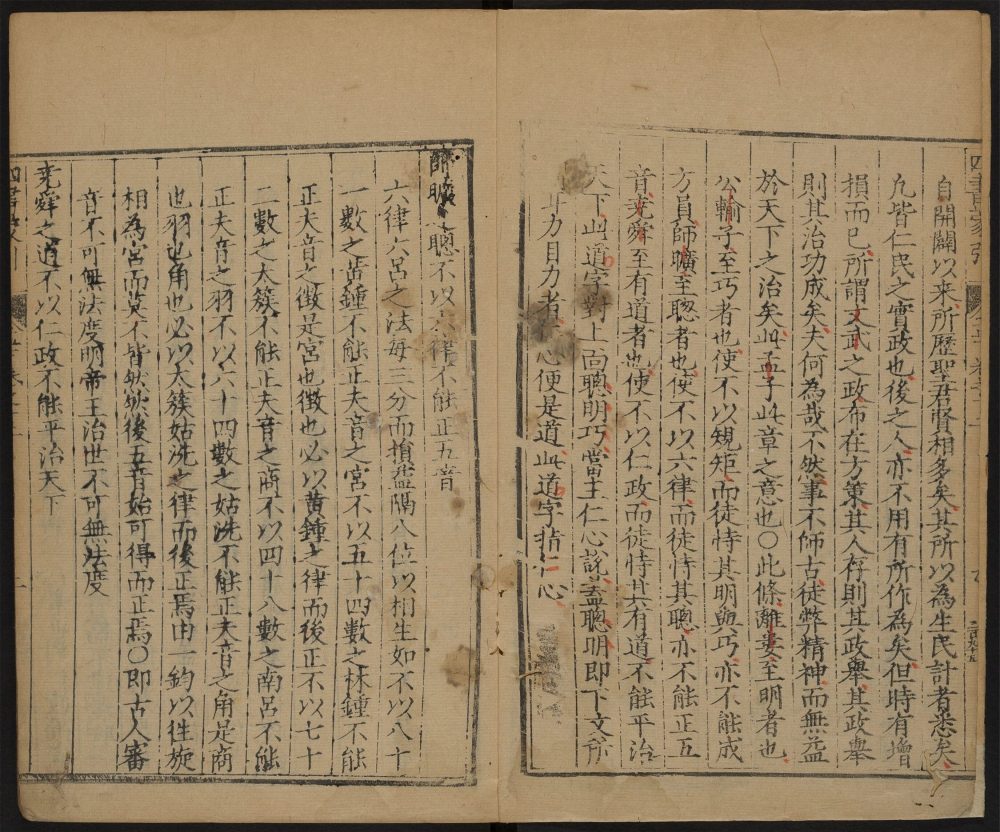 自開闢以来所歷聖君賢相多矣其所以為生民計者悉矣
九皆仁民之實政也後之人亦不用有所作為矣但時有增
損而已所謂文武之政布在方策其人存則其政舉其政舉
則其治功成矣夫何為哉不然事不師古徒弊精神而無益
於天下之治矣此孟子此章之意也〇此條離婁至明者也
公輸子至巧者也使不以規矩而徒恃其明與巧亦不能成
方員師曠至聰者也使不以六律而徒恃其聰亦不能正五
音堯舜至有道者也使不以仁政而徒恃其有道不能平治
天下此道字對上面聰明巧當主仁心說蓋聰明即下文所
耳力目力者心便是道此道字指仁心
師曠之聰不以六律不能正五音
六律六呂之法每三分而損益隔八位以相生如不以八十
一數之黃鍾不能正夫音之宮不以五十四數之林鍾不能
正夫音之徵是宮也徵也必以黃鍾之律而後正不以七十
二數之太簇不能正夫音之商不以四十八數之南呂不能
正夫音之羽不以六十四數之姑洗不能正夫音之角是商
也羽也角也必以太簇姑洗之律而後正焉由一鈞以徃旋
相為宮而莫不皆然然後五音始可得而正焉〇即古人審
音不可無法度明帝王治世不可無法度
堯舜之道不以仁政不能平治天下